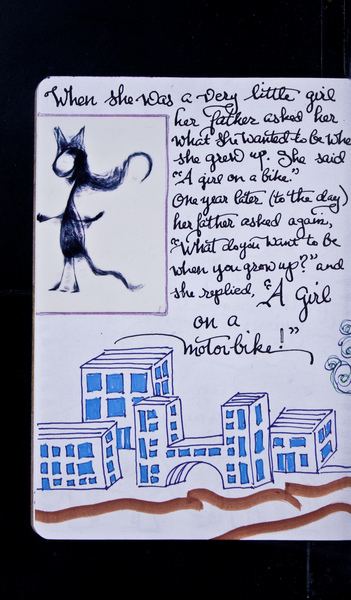 When she was a very little girl
her father asked her
what she wanted to be whe
she grew up. She said
"A girl on a bike."
One year later (to the day)
her father asked again,
"What do you want to be
when you grow up?" and
she replied, "A Girl
on a
motor-bike!"